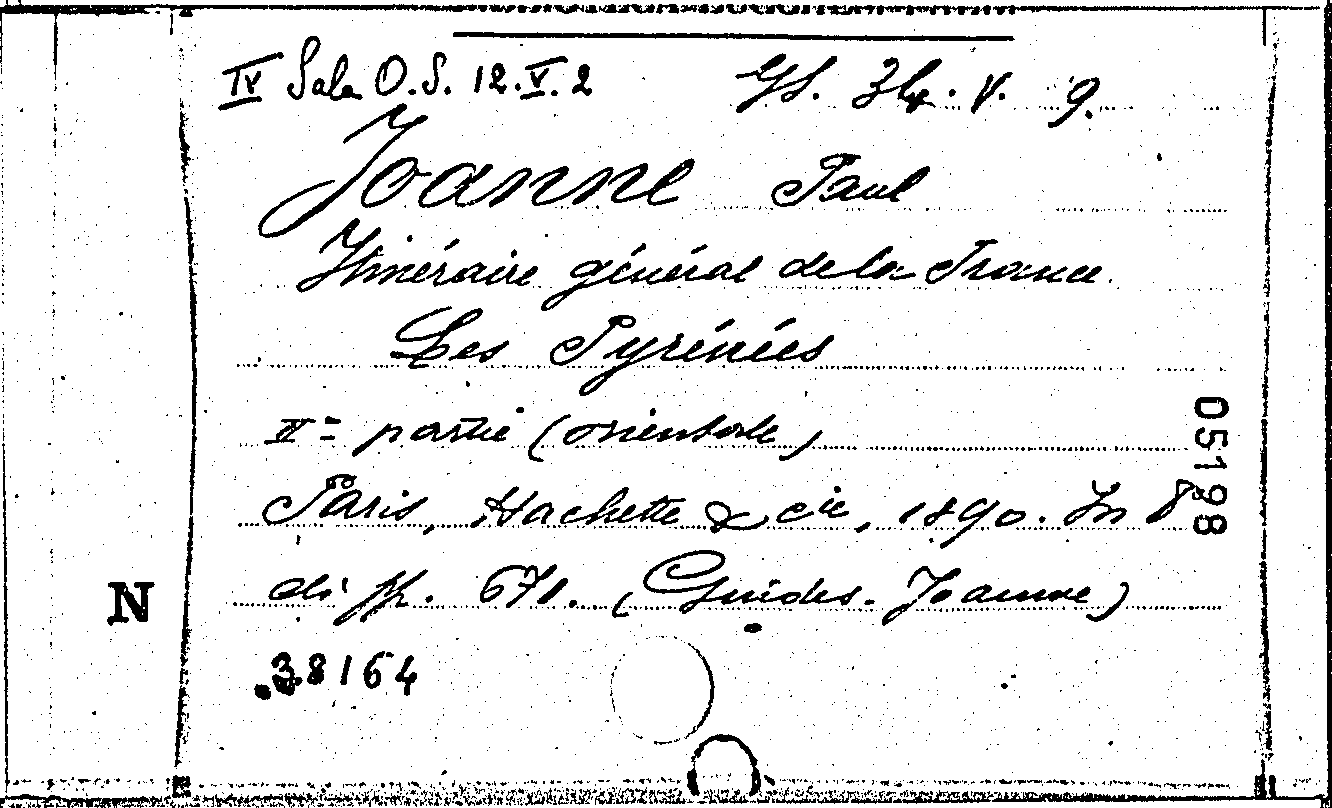 IV Sala O.S. 12.V.2
GS. 34. V. 9.
Joanne Paul
Itinéraire général de la France
Les Pyrénées
IIe partie (orientale)
Paris, Hachette & cie, 1890. In 8
di pp. 671. (Guides-Joanne)
38164
N
05198